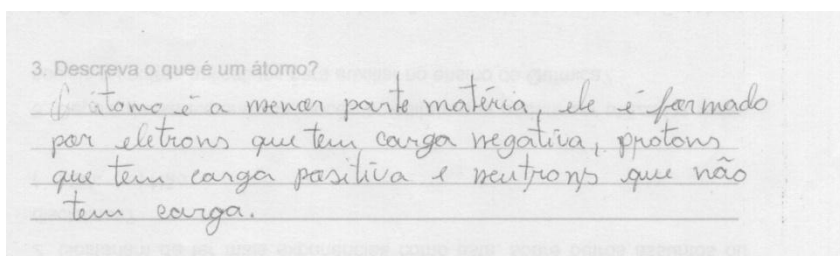 3. Descreva o que é um átomo?
O átomo é a menor parte matéria, ele é formado
por eletrons que tem carga negativa, protons
que tem carga positiva e neutrons que não
tem carga.